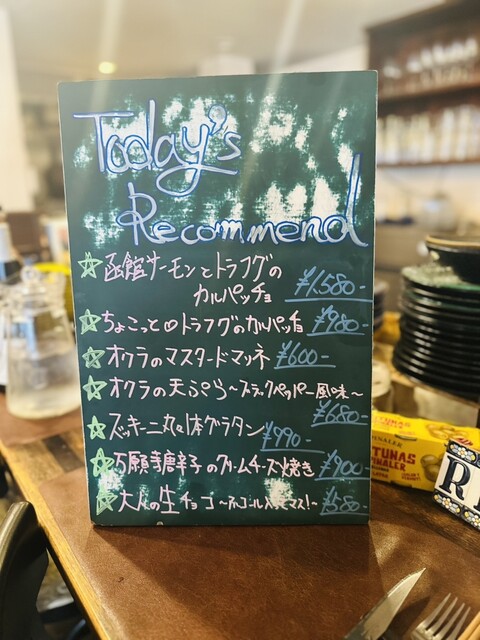 Today's
Recommend
☆函館サーモンとトラフグの
カルパッチョ ¥1,580-
☆ちょこっと♡トラフグのカルパッチョ ¥980-
☆オクラのマスタードマリネ ¥600-
☆オクラの天ぷら〜ブラックペッパー風味〜
¥680-
☆ズッキーニ丸々1本グラタン ¥990-
☆万願寺唐辛子のクリームチーズ焼き ¥900-
☆大人の生チョコ〜アルコール入ってマス!〜 ¥580-
TUNAS